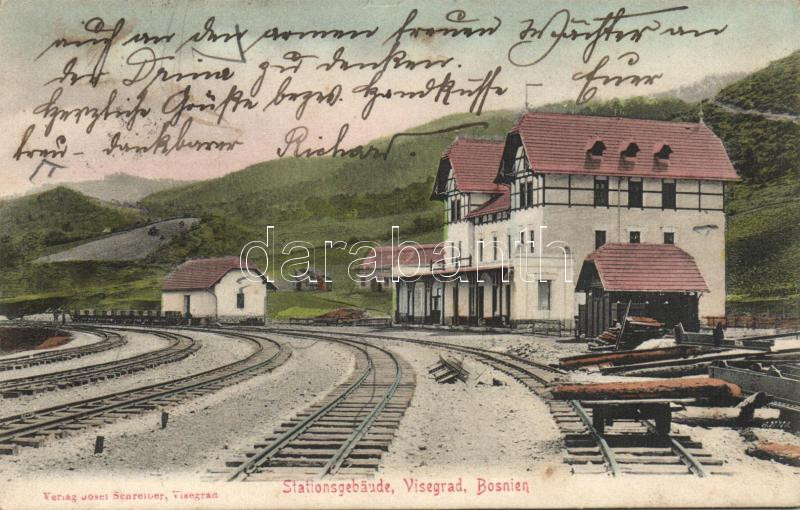 auch an den armen treuen Wächter an
der Drina zu denken.
Herzliche Grüße bezw. Handküsse Euer
treu- dankbarer Richard.
darabanth.com
Stationsgebäude, Visegrad, Bosnien
Verlag Josef Schreiber, Visegrad